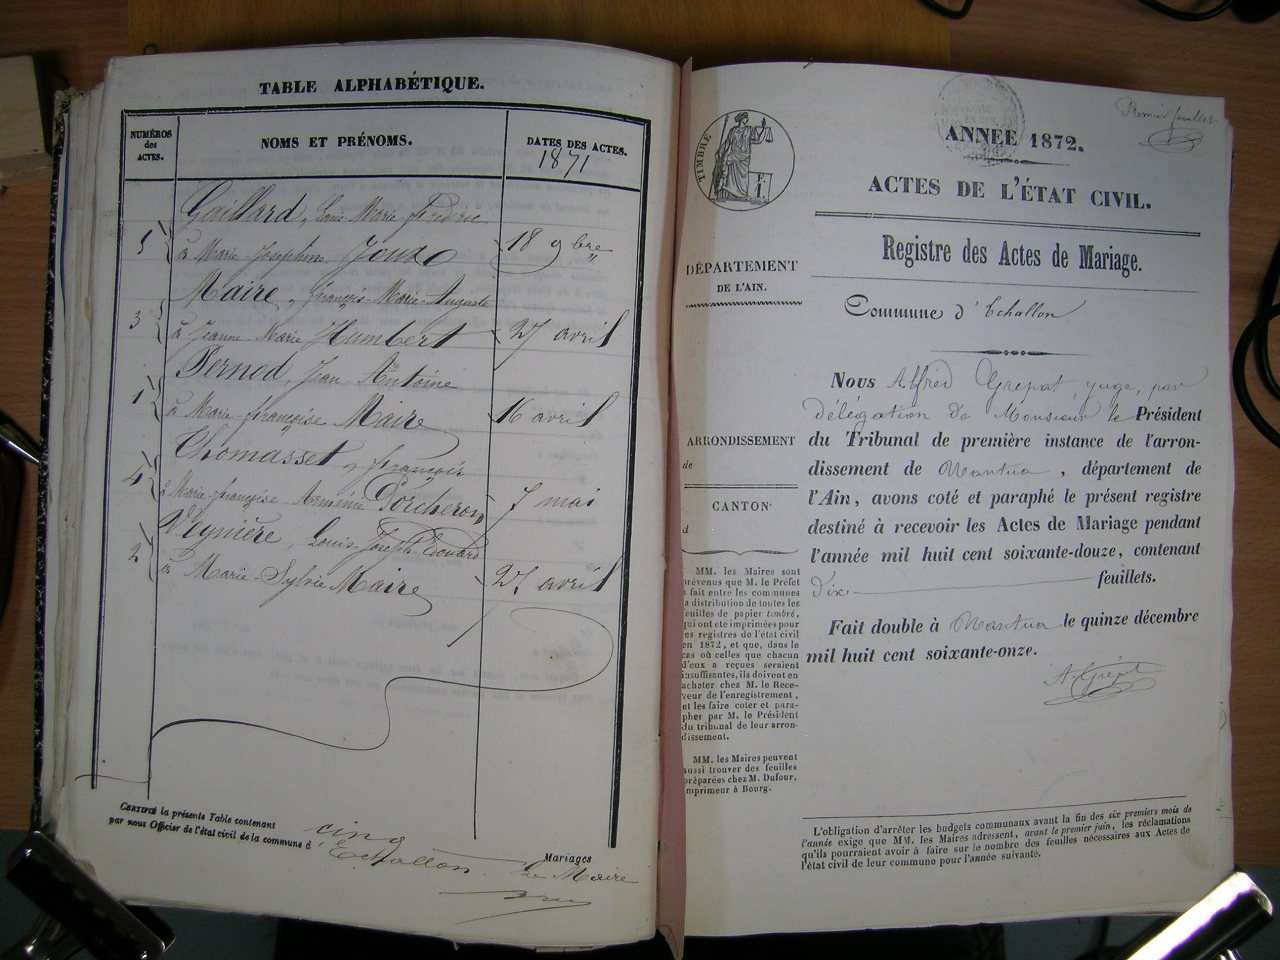 TABLE ALPHABÉTIQUE.
NUMÉROS
des
ACTES.
NOMS ET PRÉNOMS.
DATES DES ACTES.
1871
Gaillard, Marie
5 à Marie-Josephine Jouzo 18 9bre
Maire, François-Marie-Auguste
3 à Jeanne-Marie Humbert 27 avril
Pernod, Jean Antoine
1 à Marie-françoise Maire 16 avril
Thomasset, françois
4 à Marie-françoise Porcheron 7 mai
Vignière, Louis-Joseph-Edouard
2 à Marie-Sylvie Maire 27 avril
CERTIFIÉ la présente Table contenant cinq Mariages
par nous Officier de l'état civil de la commune d'Echallon
Le Maire
Premier feuillet
TIMBRE
ANNÉE 1872.
ACTES DE L'ÉTAT CIVIL.
Registre des Actes de Mariage.
DÉPARTEMENT
DE L'AIN.
ARRONDISSEMENT
de
CANTON
d
MM. les Maires sont
prévenus que M. le Préfet
a fait entre les communes
la distribution de toutes les
feuilles de papier timbré,
qui ont été imprimées pour
les registres de l'état civil
en 1872, et que, dans le
cas où celles que chacun
d'eux a reçues seraient
insuffisantes, ils doivent en
acheter chez M. le Rece-
veur de l'enregistrement,
et les faire coter et para-
pher par M. le Président
du tribunal de leur arron-
dissement.
MM. les Maires peuvent
aussi trouver des feuilles
préparées chez M. Dufour,
imprimeur à Bourg.
Commune d'Echallon
Nous Alfred Grepat, juge, par
délégation de Monsieur le Président
du Tribunal de première instance de l'arron-
dissement de Nantua, département de
l'Ain, avons coté et paraphé le présent registre
destiné à recevoir les Actes de Mariage pendant
l'année mil huit cent soixante-douze, contenant
dix feuillets.
Fait double à Nantua le quinze décembre
mil huit cent soixante-onze.
L'obligation d'arrêter les budgets communaux avant la fin des six premiers mois de
l'année exige que MM. les Maires adressent, avant le premier juin, les réclamations
qu'ils pourraient avoir à faire sur le nombre des feuilles nécessaires aux Actes de
l'état civil de leur commune pour l'année suivante.